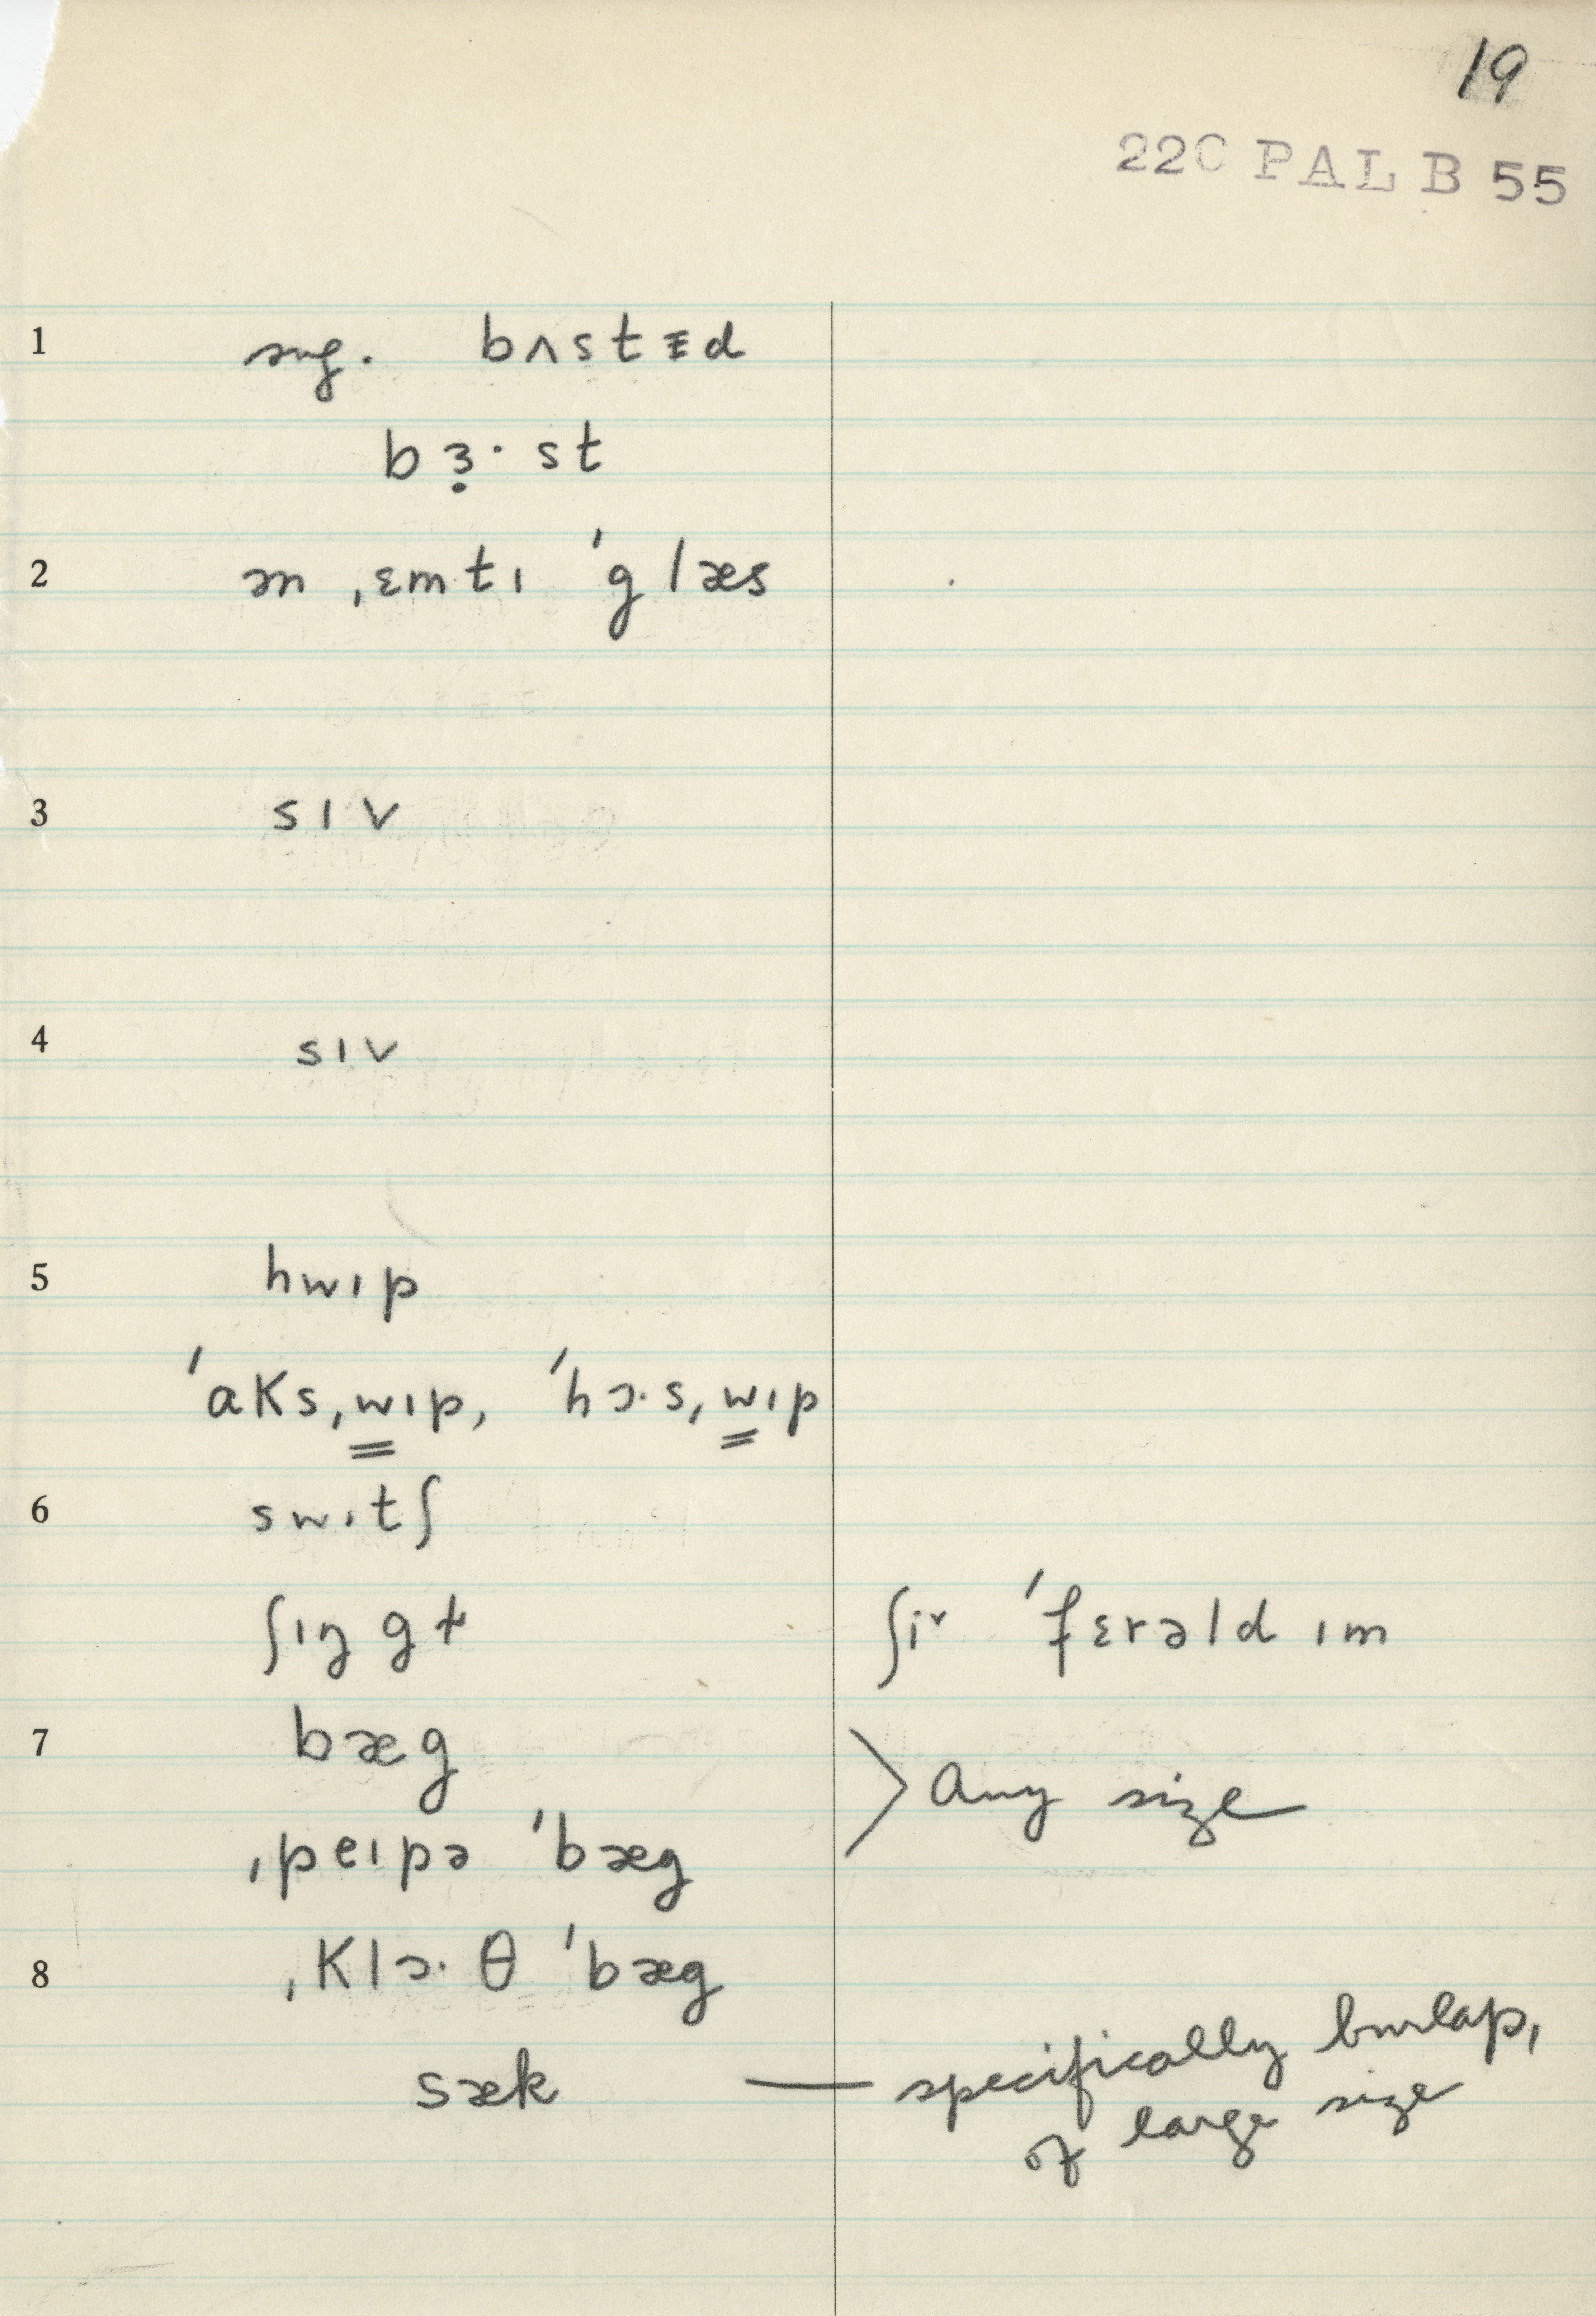 19
22C PAL B 55
1 sug. bʌstɨd
bɜ̣·st
2 æn ˌɛmtɪ ˈglæs
3 sɪv
4 sɪv
5 hwɪp
ˈaksˌwɪp, ˈhɔ·sˌwɪp
6 swɪtʃ
ʃɪŋgɫ ʃiᵛ ˈfɛrəld ɪm
7 bæg > any size
ˌpeɪpə ˈbæg
8 ˌklɔ·θ ˈbæg
sæk — specifically burlap,
of large size